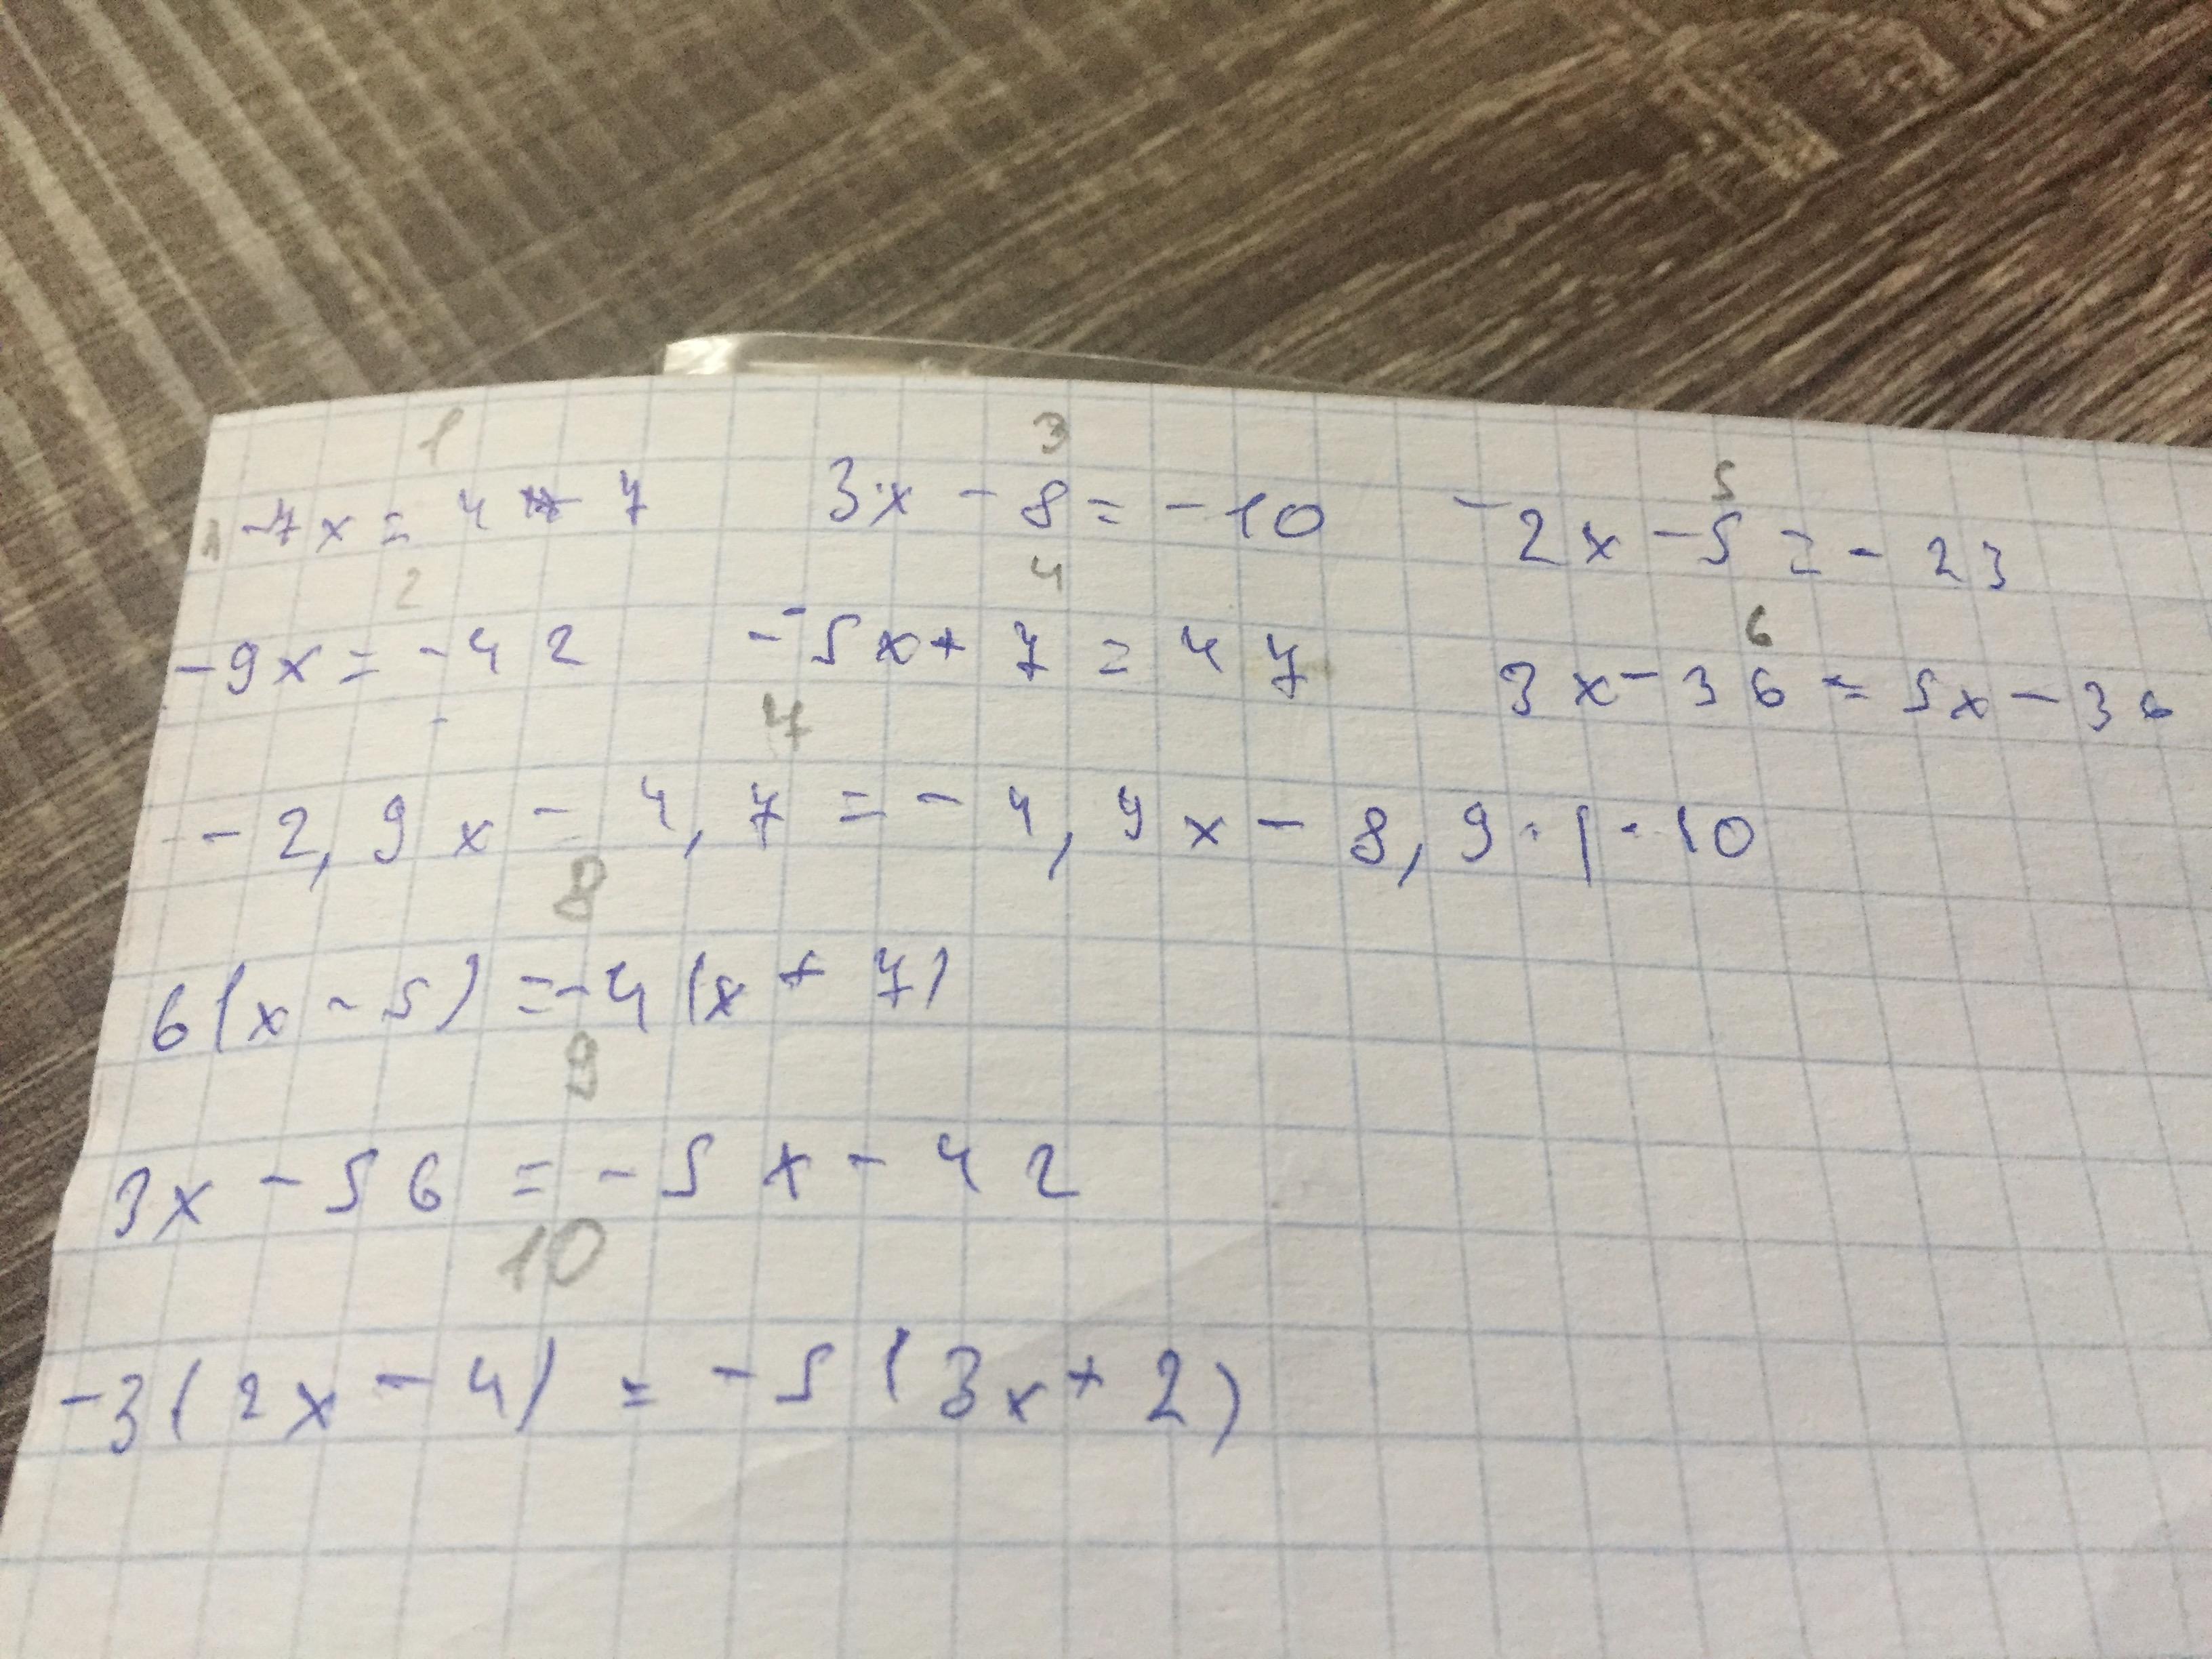 1 3 5
-7x = 4 7 3x - 8 = -10 -2x - 5 = -23
2 4 6
-9x = -42 -5x + 7 = 47 3x - 36 = 5x - 36
7
-2,9x - 4,7 = -4,9x - 8,9 · | · 10
8
6(x - 5) = -4(x + 7)
9
3x - 56 = -5x - 42
10
-3(2x - 4) = -5(3x + 2)